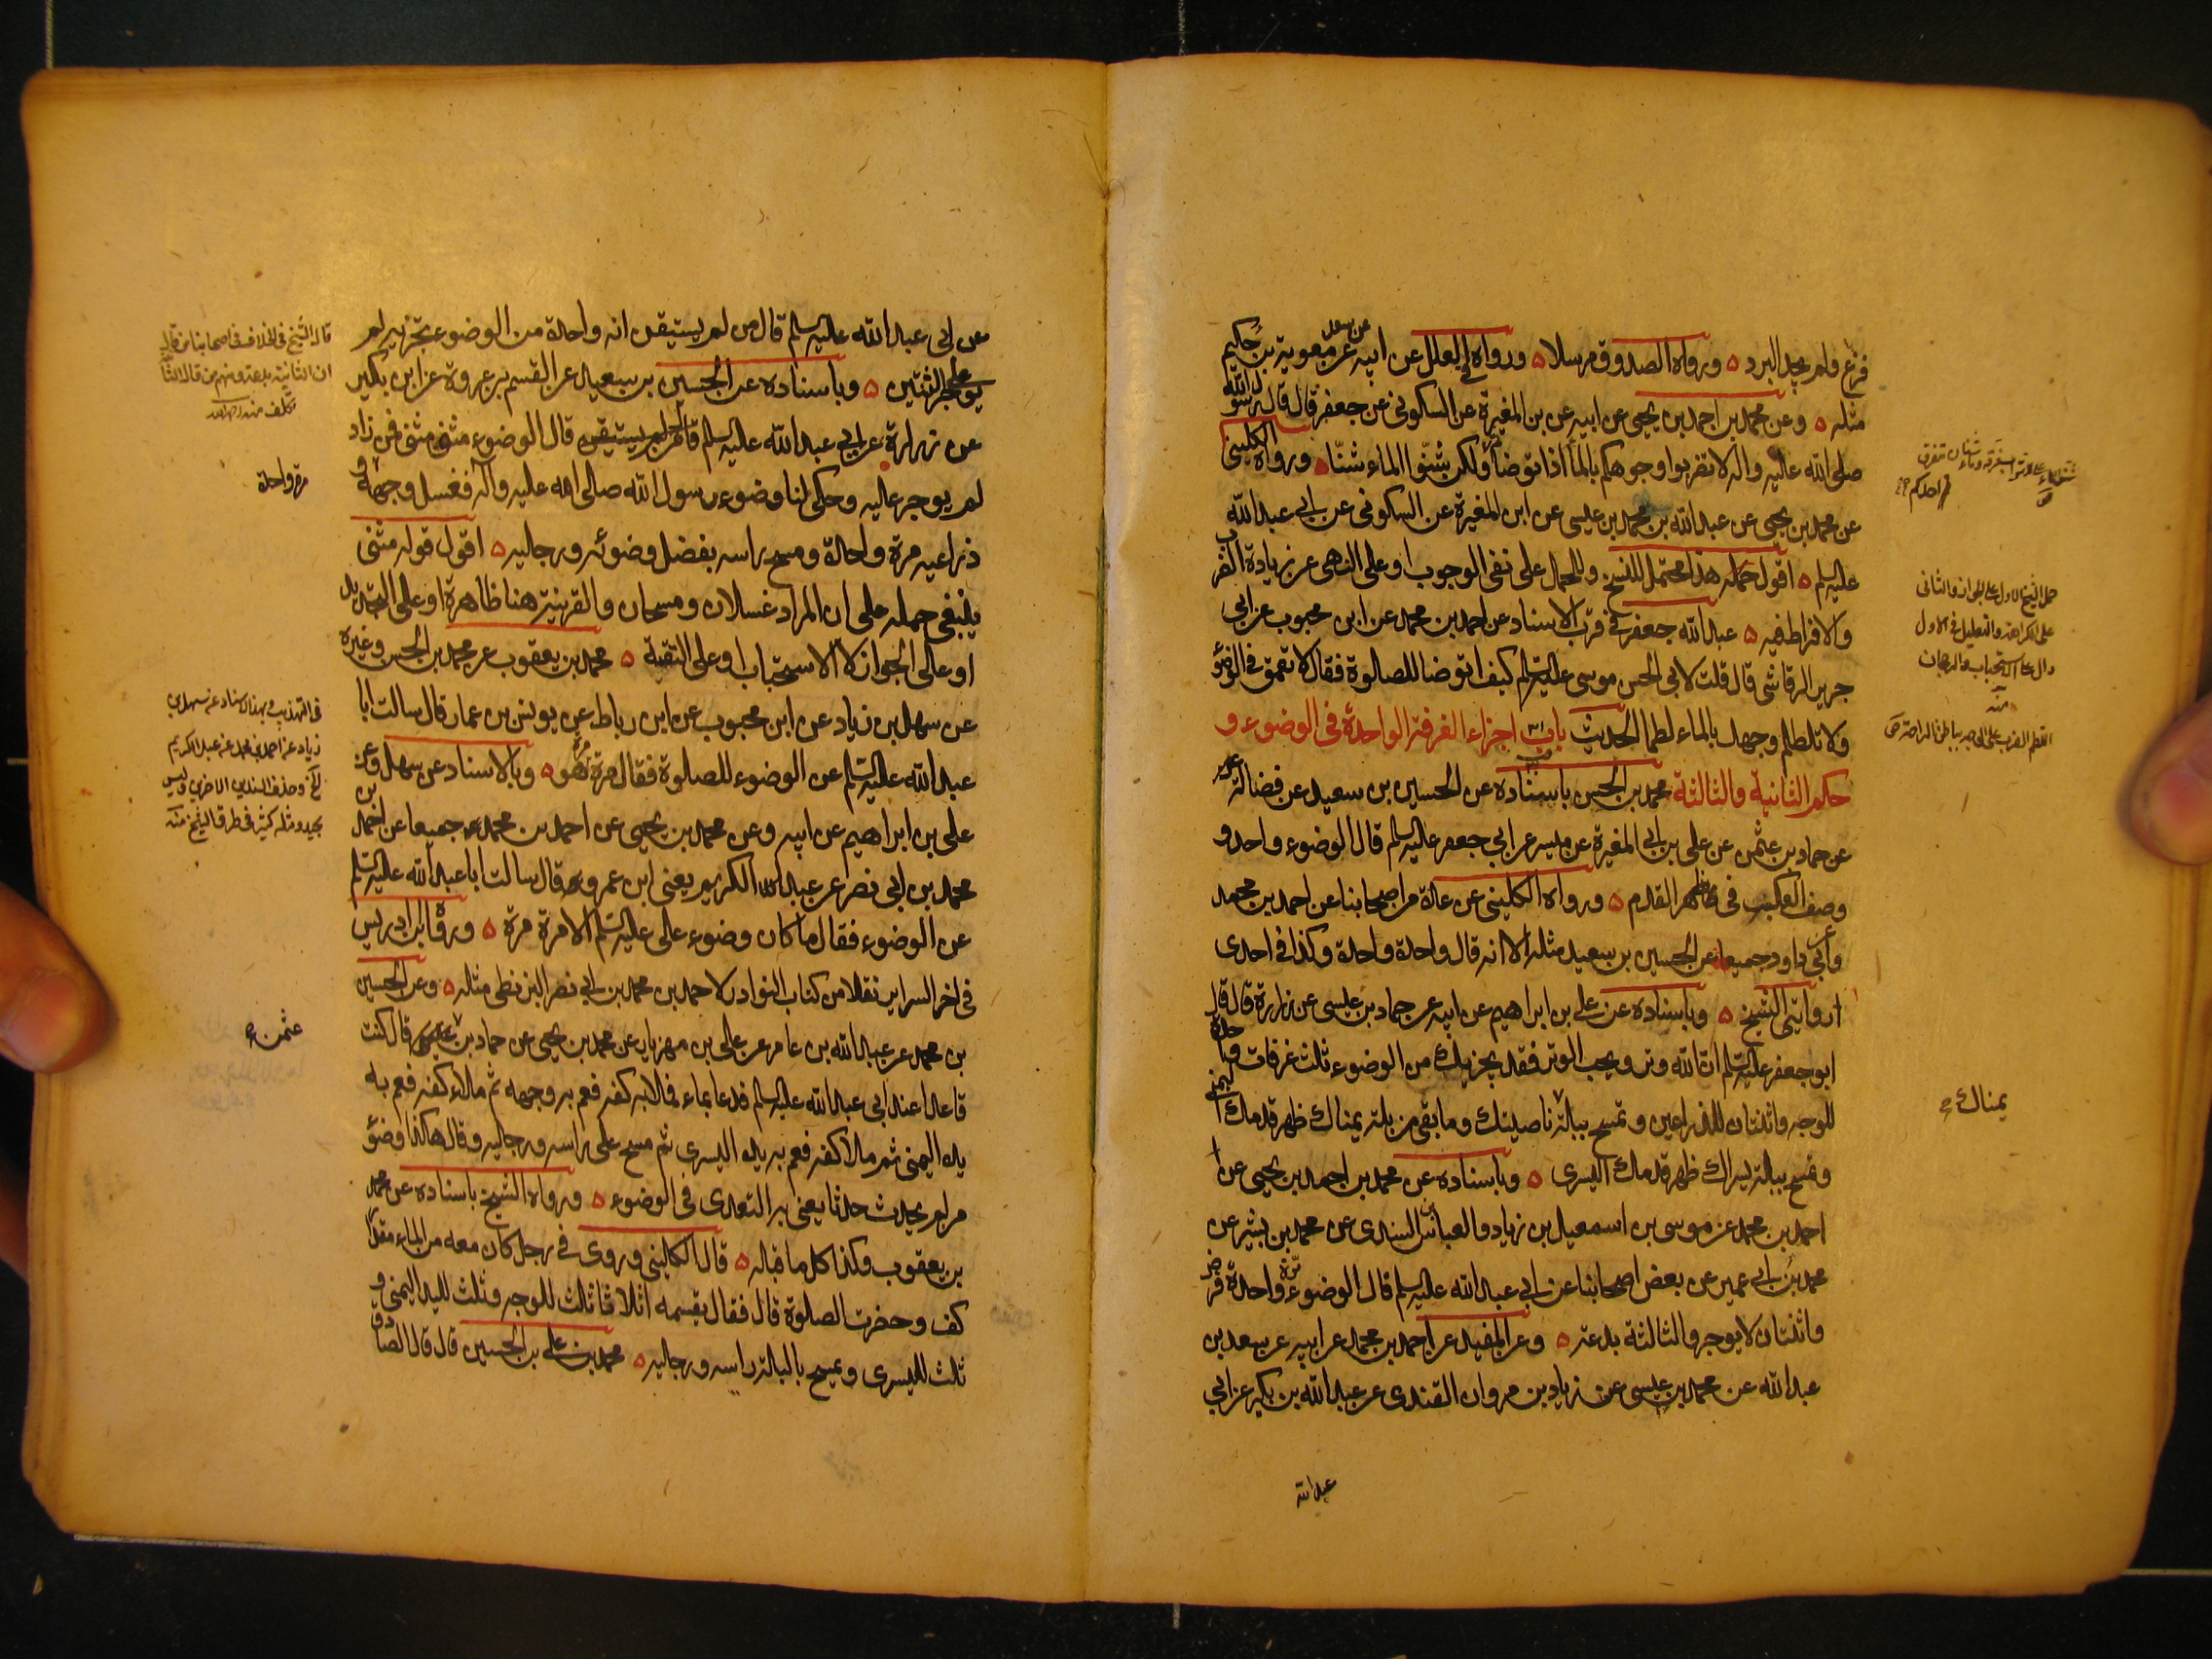 فزع ولم يجد البرد ورواه الصدوق مرسلا ورواه في العلل عن ابيه عن سعد عن معوية بن حكيم
مثله وعن محمد بن احمد بن يحيى عن ابيه عن بن المغيرة عن السكوني عن جعفر قال قال رسول الله
صلى الله عليه واله لا تضربوا وجوهكم بالماء اذا توضأتم ولكن شنّوا الماء شنّا ورواه الكليني
عن محمد بن يحيى عن عبد الله بن محمد بن عيسى عن ابن المغيرة عن السكوني عن ابي عبد الله
عليه السلم اقول هذا محتمل للنسخ وللحمل على نفى الوجوب او على النهى عن زيادة الضرب
والافراط فيه عبد الله جعفر في قرب الاسناد عن احمد بن محمد عن ابن محبوب عن ابي
جرير الرقاشى قال قلت لابي الحسن موسى عليه السلم كيف اتوضا للصلوة فقال لا تعمق في الوضوء
ولا تلطم وجهك بالماء لطما الحديث باب اجزاء الغرفة الواحدة في الوضوء و
حكم الثانية والثالثة محمد بن الحسن باسناده عن الحسين بن سعيد عن فضالة
عن حماد بن عثمن عن علي بن ابي المغيرة عن ميسر عن ابي جعفر عليه السلم قال الوضوء واحد و
وصف الكعب في ظهر القدم ورواه الكليني عن عدة من اصحابنا عن احمد بن محمد
وابي داود جميعا عن الحسين بن سعيد مثله الا انه قال واحدة واحدة وكذا في احدى
روايتي الشيخ وباسناده عن علي بن ابراهيم عن ابيه عن حماد بن عيسى عن زرارة قال قال
ابو جعفر عليه السلم ان الله وتر ويحب الوتر فقد يجزيك من الوضوء ثلث غرفات واحدة
للوجه واثنتان للذراعين وتمسح ببلة ناصيتك وما بقى من بلة يمناك ظهر قدمك اليمنى
وتمسح ببلة يسراك ظهر قدمك اليسرى وباسناده عن محمد بن احمد بن يحيى عن
احمد بن محمد عن موسى بن اسمعيل بن زياد والعباس السندى عن محمد بن بشير عن
محمد بن ابي عمير عن بعض اصحابنا عن ابي عبد الله عليه السلم قال الوضوء واحدة فرض
واثنتان لا يوجر والثالثة بدعة وعن المفيد عن احمد بن محمد عن ابيه عن سعد بن
عبد الله عن محمد بن عيسى عن زياد بن مروان القندى عن عبد الله بن بكير عن ابي
عبد الله
حمل الشيخ الاول على الجواز والثاني
على الكراهة والتعليل في الاول
دال على الاستحباب والرجحان
منه
يمناك
عن ابي عبد الله عليه السلم قال من لم يستيقن انه واحدة من الوضوء تجزيه لم
يوجر على الثنتين وباسناده عن الحسين بن سعيد عن القسم بن عروة عن ابن بكير
عن زرارة عن ابي عبد الله عليه السلم قال الوضوء مثنى مثنى من زاد
لم يوجر عليه وحكى لنا وضوء رسول الله صلى الله عليه وآله فغسل وجهه و
ذراعيه مرة واحدة ومسح راسه بفضل وضوئه ورجليه اقول قوله مثنى
ينبغي حمله على ان المراد غسلان ومسحان والقرينة هنا ظاهرة او على التجديد
او على الجواز لا الاستحباب او على التقية محمد بن يعقوب عن محمد بن الحسن وغيره
عن سهل بن زياد عن ابن محبوب عن ابن رباط عن يونس بن عمار قال سالت ابا
عبد الله عليه السلم عن الوضوء للصلوة فقال مرة مرة هو وبالاسناد عن سهل وعن
علي بن ابراهيم عن ابيه وعن محمد بن يحيى عن احمد بن محمد جميعا عن احمد بن
محمد بن ابي نصر عن عبد الكريم يعني ابن عمرو قال سالت ابا عبد الله عليه السلم
عن الوضوء فقال ما كان وضوء علي عليه السلم الا مرة مرة ورواه ابن ادريس
في اخر السراير نقلا من كتاب النوادر لاحمد بن محمد بن ابي نصر البزنطى مثله وعن الحسين
بن محمد عن عبد الله بن عامر عن علي بن مهزيار عن محمد بن يحيى عن حماد بن عيسى قال كنت
قاعدا عند ابي عبد الله عليه السلم فدعا بماء فملا به كفه فعم به وجهه ثم ملاء كفه فعم به
يده اليمنى ثم ملا كفه فعم به يده اليسرى ثم مسح على راسه ورجليه وقال هكذا وضوء
من لم يحدث حدثا يعني به التعدى في الوضوء ورواه الشيخ باسناده عن محمد
بن يعقوب وكذا كل ما قبله قال الكليني وروى في رجل كان معه من الماء مقدار
كف وحضرت الصلوة قال فقال يقسمه اثلاثا ثلث للوجه وثلث لليد اليمنى و
ثلث لليسرى ويمسح بالبلة راسه ورجليه محمد بن علي بن الحسين قال قال الصادق
قال الشيخ في الخلاف في اصحابنا من قال
ان الثانية بدعة ومنهم من قال الثانية
مرة واحدة
في التهذيب وبهذا الاسناد عن سهل بن
زياد عن احمد بن محمد عن عبد الكريم
عثمن